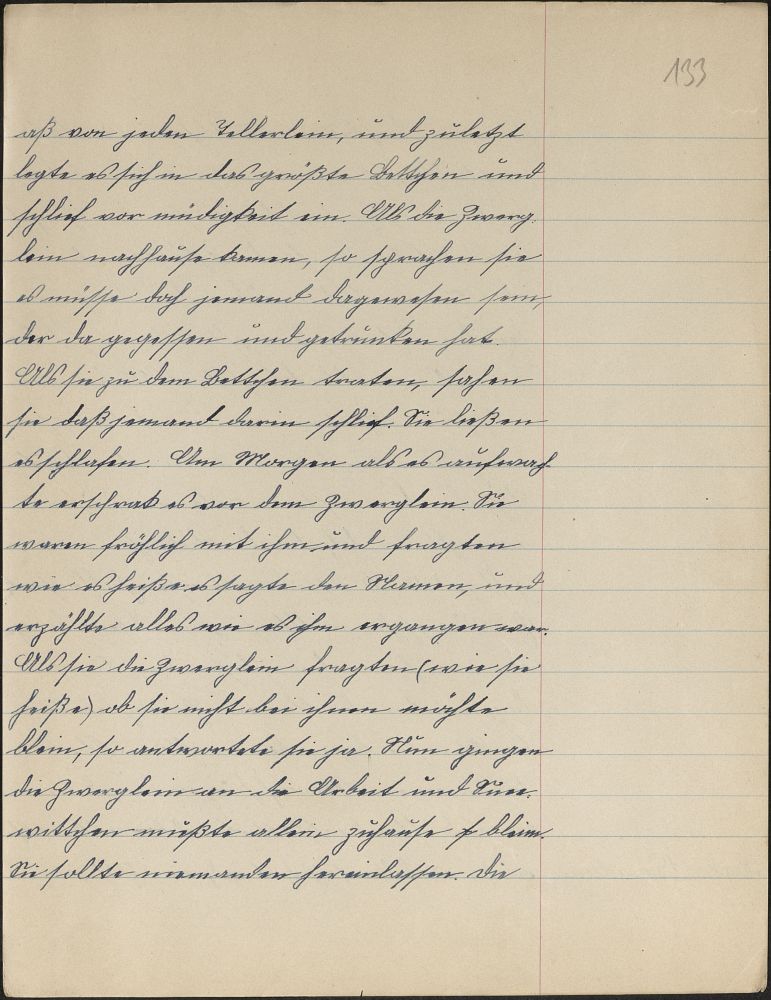 133
aß von jeden Tellerlein, und zuletzt
legte es sich in das größte Bettchen und
schlief vor müdigkeit ein. Als die Zwerg-
lein nachhause kamen, so sprachen sie
es müsse doch jemand dagewesen sein,
der da gegessen und getrunken hat.
Als sie zu dem Bettchen traten, sahen
sie daß jemand darin schlief. Sie ließen
es schlafen. Am Morgen als es aufwach-
te erschrak es vor dem Zwerglein. Sie
waren fröhlich mit ihm und fragten
wie es heiße es sagte den Namen, und
erzählte alles wie es ihm ergangen war.
Als sie die Zwerglein fragten (wie sie
heiße) ob sie nicht bei ihnen möchte
blein, so antwortete sie ja. Nun gingen
die Zwerglein an die Arbeit und Snee-
wittchen mußte allein zuhause blein.
Sie sollte niemanden hereinlassen. Die